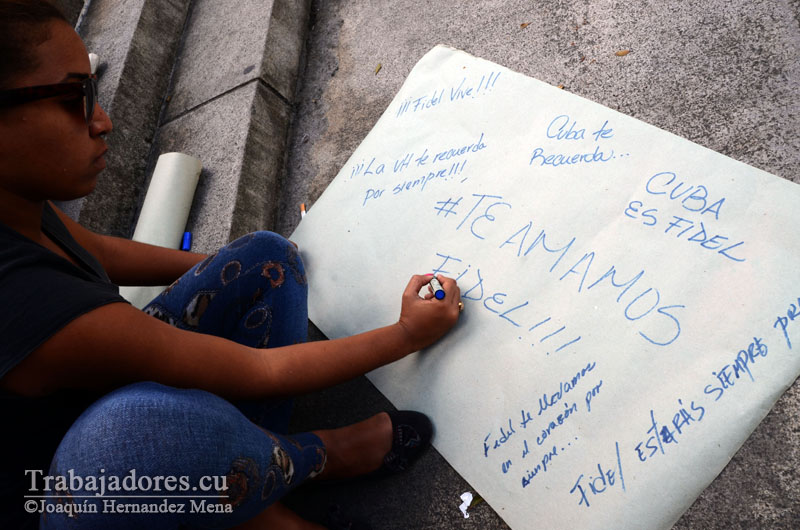 ¡¡¡Fidel Vive!!!
¡¡¡La UH te recuerda
por siempre!!!
Cuba te
Recuerda...
CUBA
ES FIDEL
#TE AMAMOS
FIDEL!!!
Fidel te llevamos
en el corazón por
siempre...
Fidel estarás siempre
Trabajadores.cu
©Joaquín Hernandez Mena